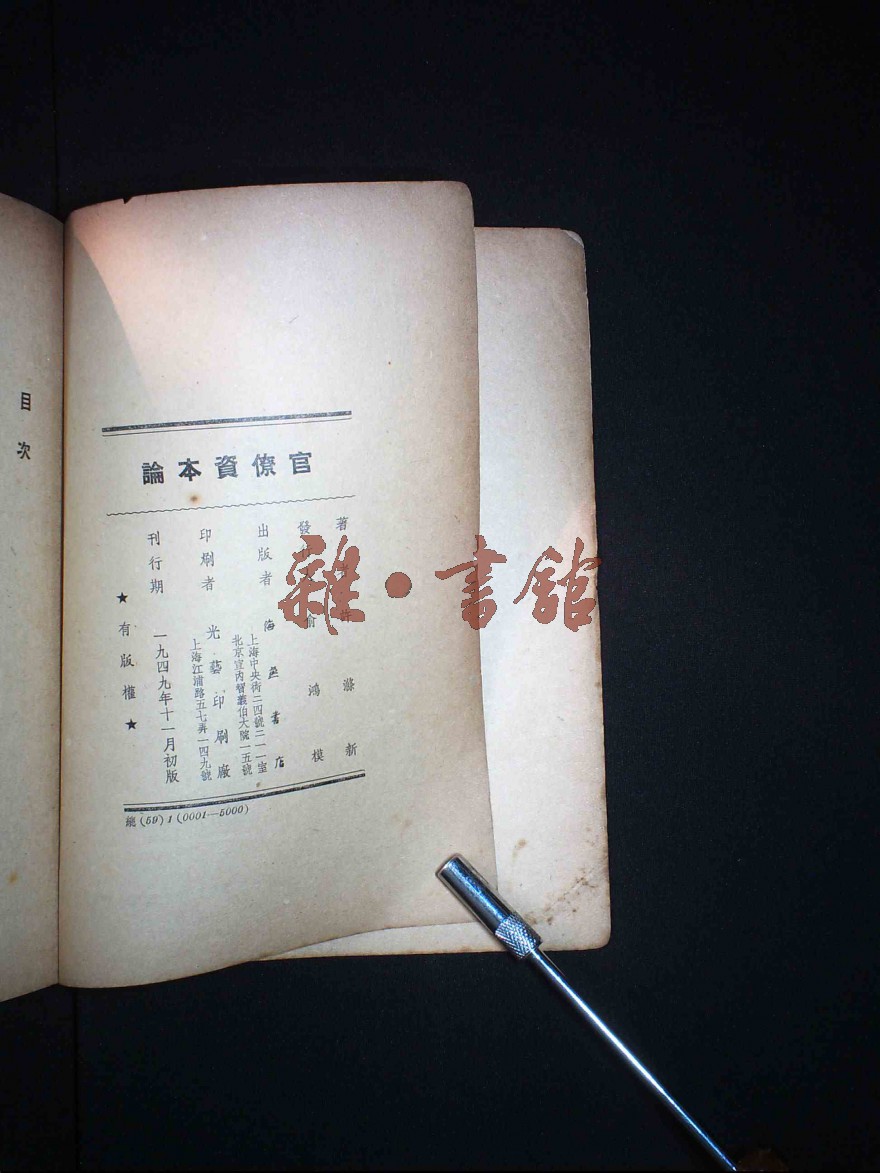 目次
官僚資本論
著者 許滌新
發行人 俞鴻模
出版者 海燕書店
上海中央街二四號二一一室
北京宣內智義伯大院一五號
印刷者 光藝印刷廠
上海江浦路五七弄一四九號
刊行期 一九四九年十一月初版
★有版權★
總(59)1(0001—5000)
雜·書館